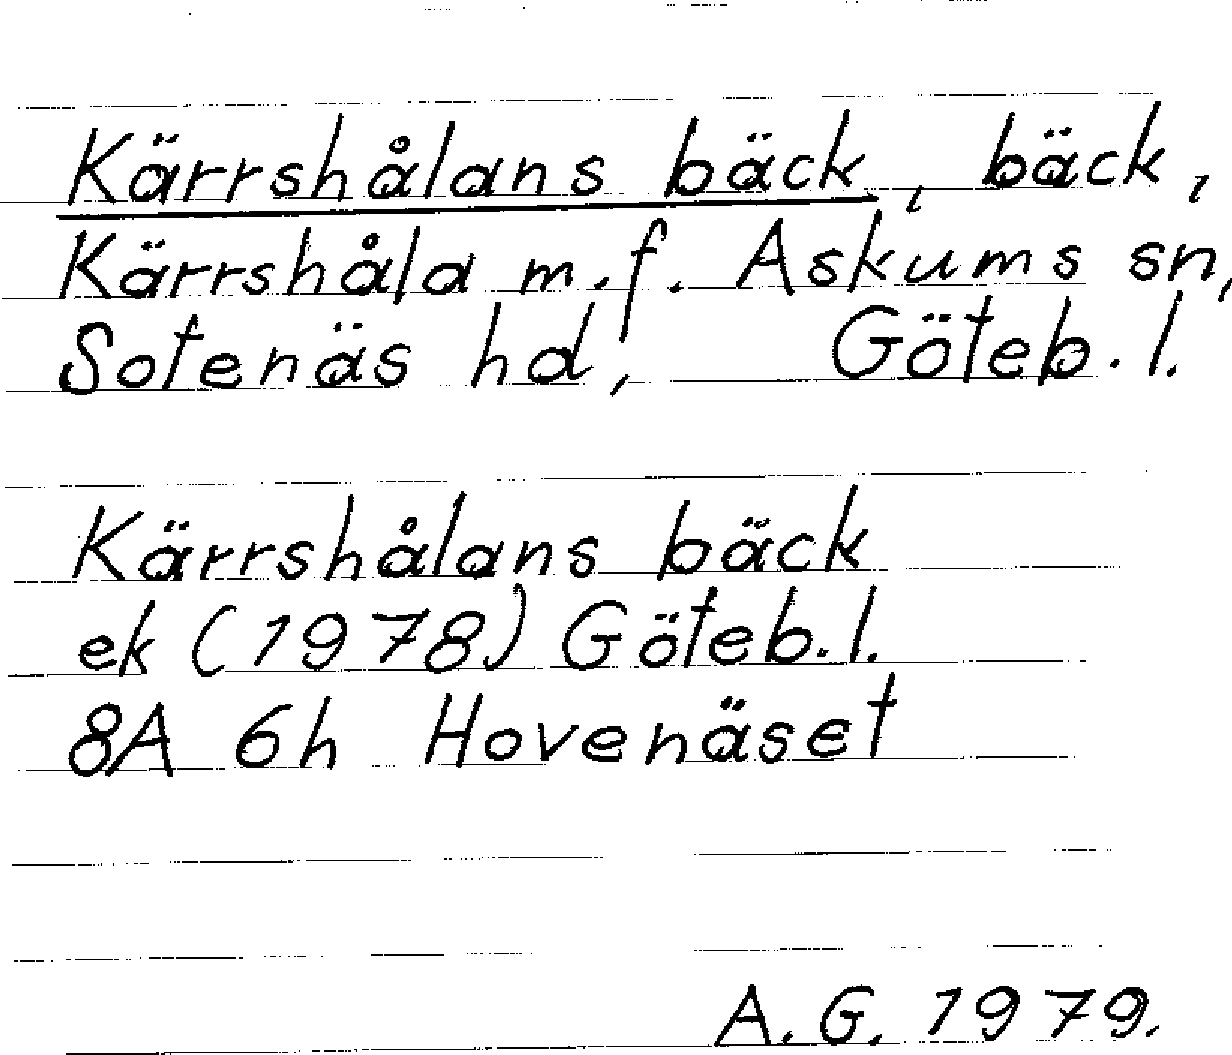 Kärrshålans bäck, bäck,
Kärrshåla m.f. Askums sn,
Sotenäs hd, Göteb.l.
Kärrshålans bäck
ek (1978) Göteb.l.
8A 6h Hovenäset
A.G. 1979.